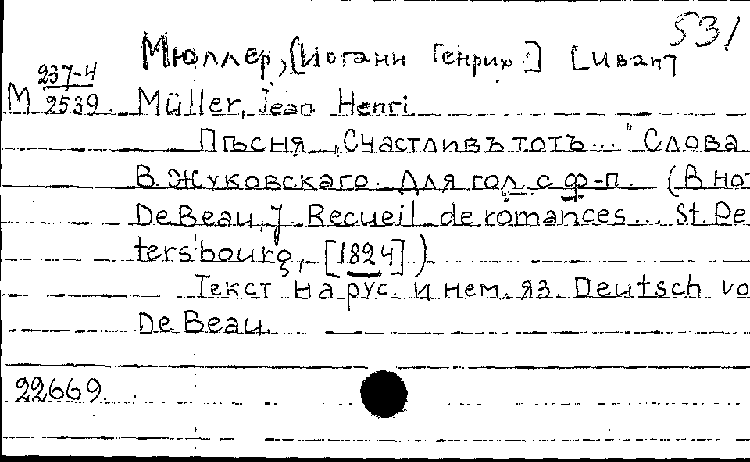 531
Мюллер, [Иоганн Генрих?] [Иван]
М 237-4
2539. Müller, Jean Henri
Пѣсня „Счастливъ тотъ..." Слова
В. Жуковскаго. Для гол. с ф-п. (В нот
De Beau, J. Recueil de romances... St. Pe
tersbourg, [1824])
Текст на рус. и нем. яз. Deutsch vo
De Beau.
22669.